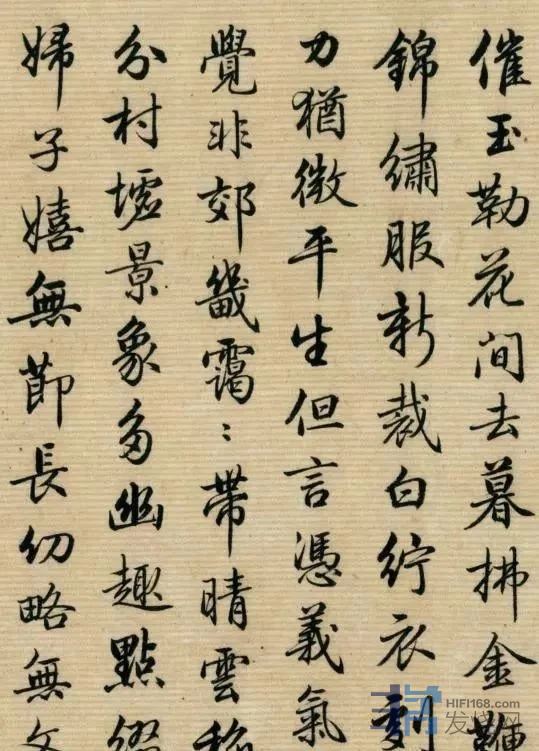 催玉勒花间去暮拂金鞭
錦繡服新裁白紵衣刻
力猶微平生但言憑義氣
覺非郊畿靄〻帶晴雲稀
分村墟景象多幽趣點綴
婦子嬉無節長幼略無文
HIFI168.com
发烧网